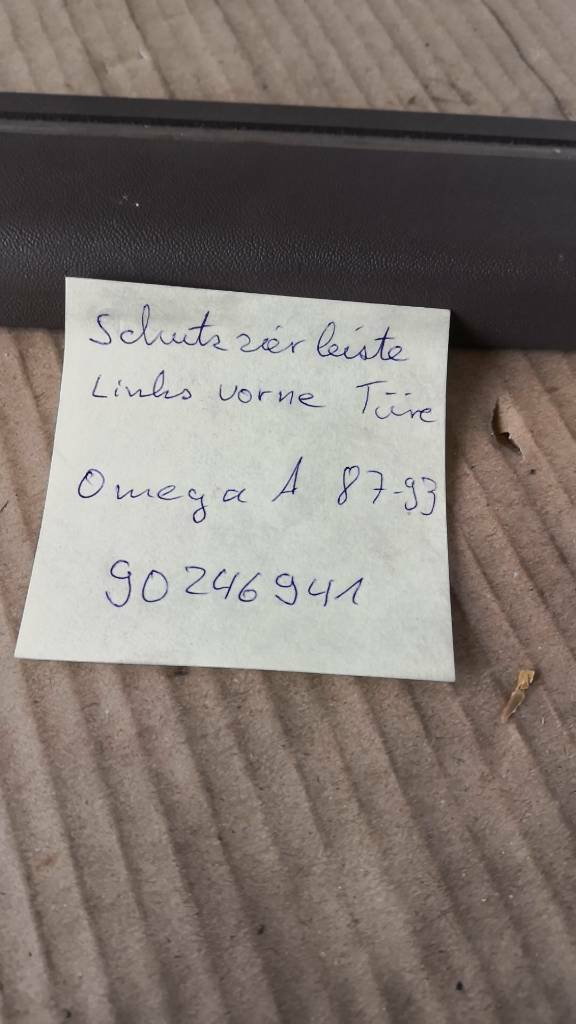 Schutzzierleiste
Links vorne Türe
Omega A 87-93
90246941